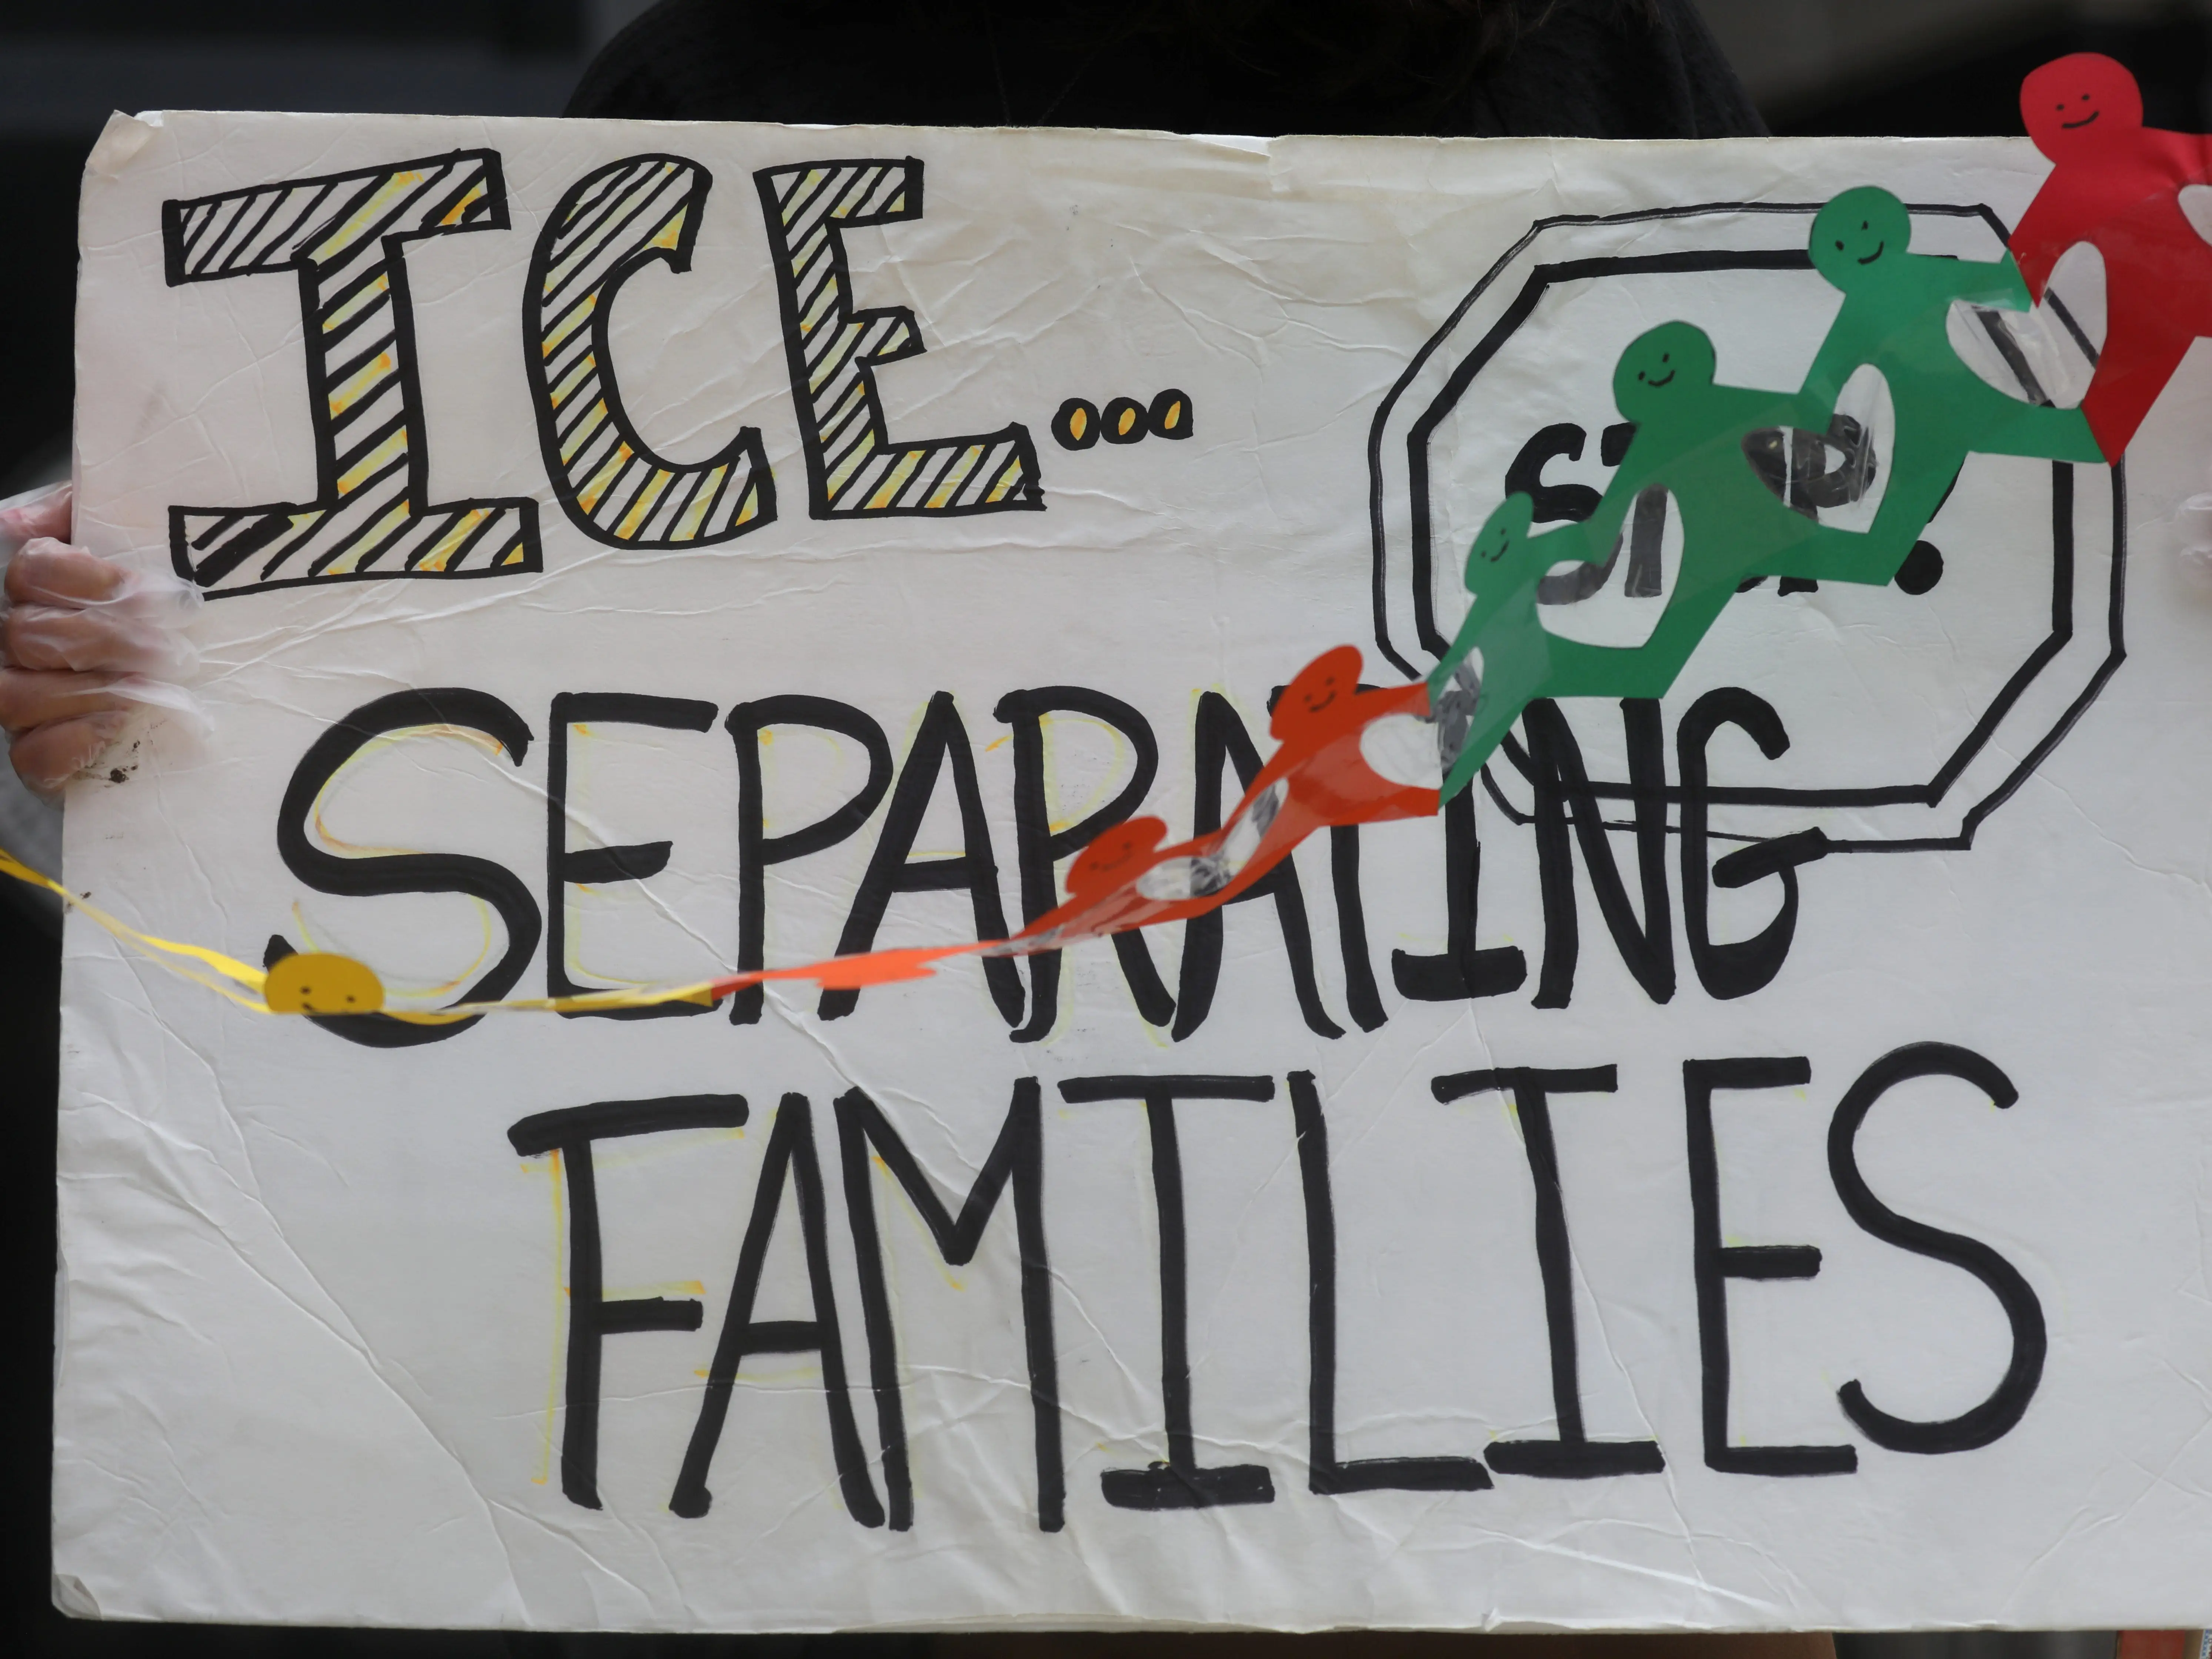 ICE...
STOP!
SEPARATING
FAMILIES